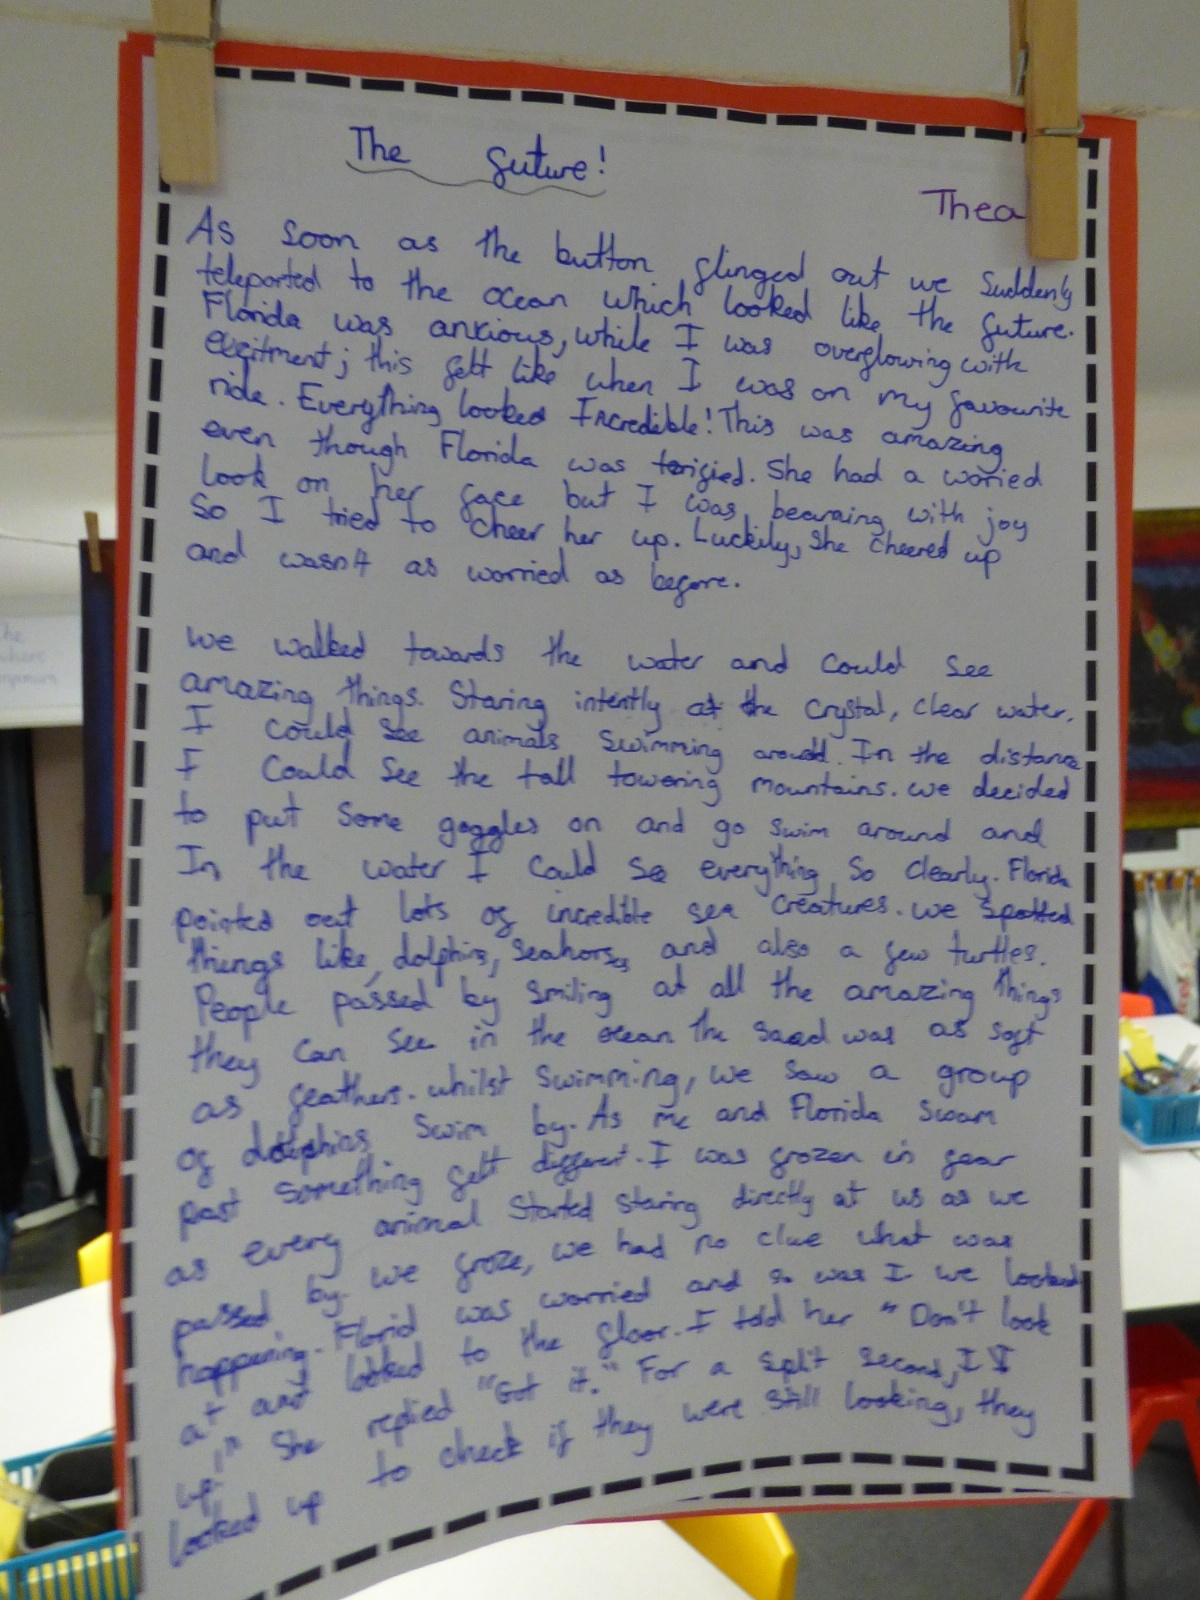 The future!
Thea
As soon as the button flinged out we suddenly
teleported to the ocean which looked like the future.
Florida was anxious, while I was overflowing with
excitment; this felt like when I was on my favourite
ride. Everything looked Incredible! This was amazing
even though Florida was terified. She had a woried
look on her face but I was beaming with joy
so I tried to cheer her up. Luckily, she cheered up
and wasn't as worried as before.
we walked towards the water and could see
amazing things. Staring intently at the crystal, clear water,
I could see animals swimming around. In the distance
I could see the tall towering mountains. we decided
to put some goggles on and go swim around and
In the water I could see everything so clearly. Florida
pointed out lots of incredible sea creatures. we spotted
things like, dolphins, seahorses and also a few turtles.
People passed by smiling at all the amazing things
they can see in the ocean the sand was as soft
as feathers. whilst swimming, we saw a group
of dolphins swim by. As me and Florida swam
past something felt different. I was frozen in fear
as every animal started staring directly at us as we
passed by. we froze, we had no clue what was
happening. Florid was worried and so was I. we looked
at and looked to the floor. I told her "Don't look
up," She replied "Got it." For a split second, I
looked up to check if they were still looking, they